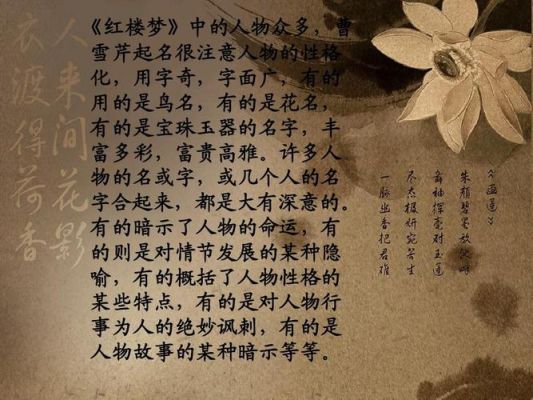 《红楼梦》中的人物众多，曹
雪芹起名很注意人物的性格
化，用字奇，字面广，有的
用的是鸟名，有的是花名，
有的是宝珠玉器的名字，丰
富多彩，富贵高雅。许多人
物的名或字，或几个人的名
字合起来，都是大有深意的。
有的暗示了人物的命运，有
的则是对情节发展的某种隐
喻，有的概括了人物性格的
某些特点，有的是对人物行
事为人的绝妙讽刺，有的是
人物故事的某种暗示等等。
人来间花影
衣渡得荷香
《画莲》
朱颜碧墨放池畔
舞袖挥毫对玉莲
尽态极妍宛若生
一脉幽香把君难